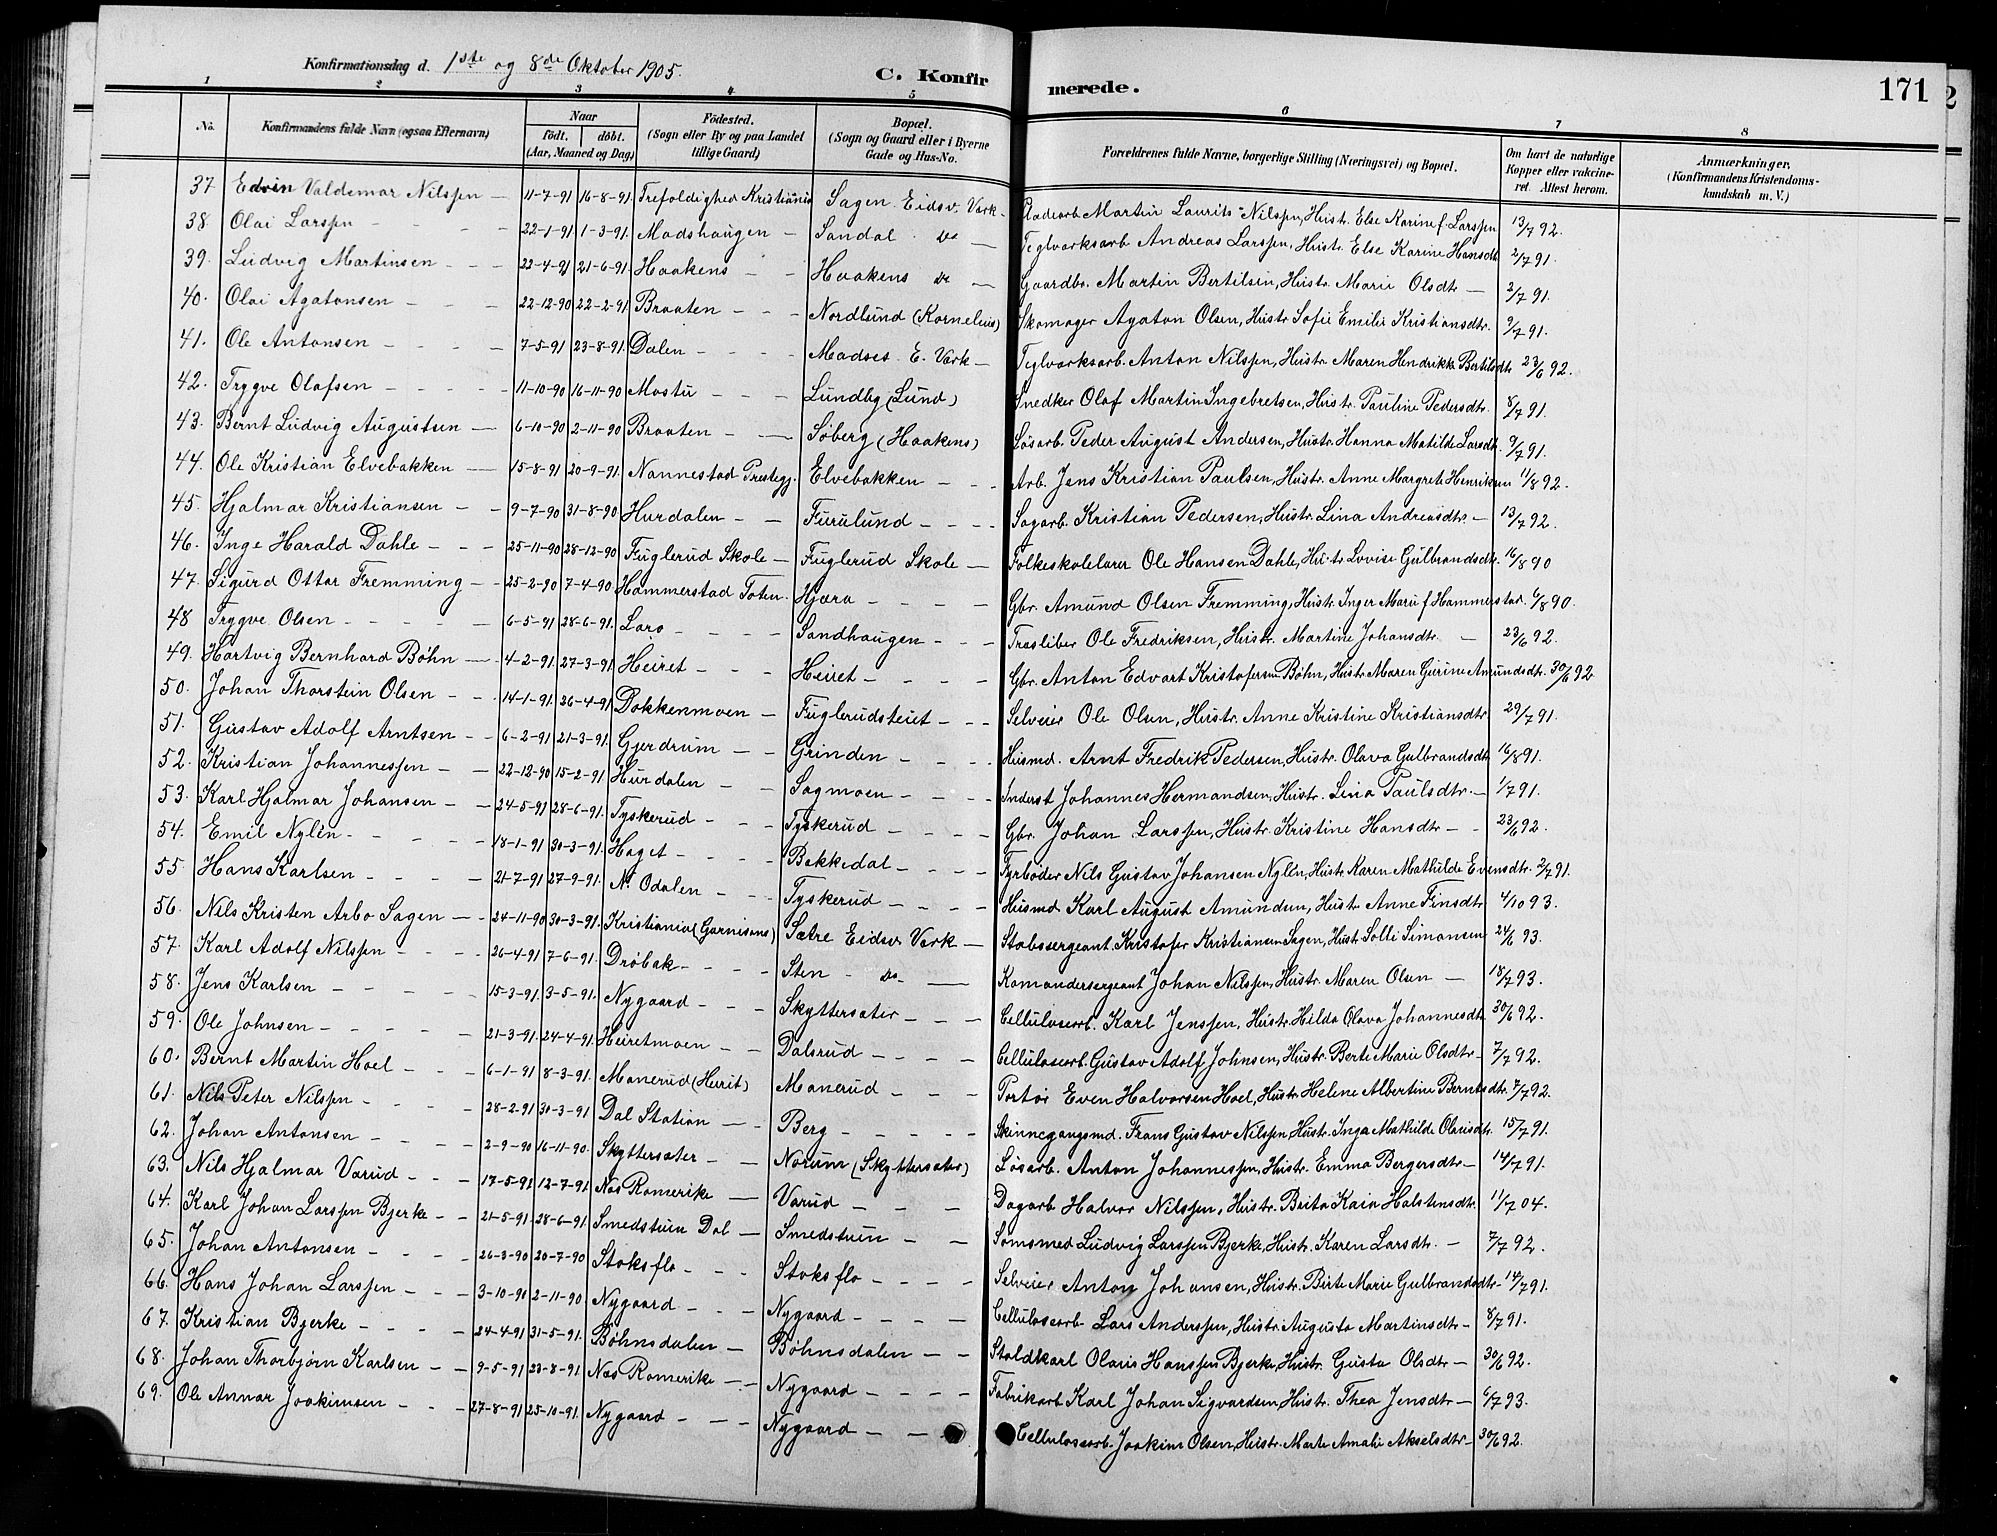 Konfirmationsdag d. 1ste og 8de Oktober 1905.
C. Konfirmerede.
171
1 2 3 4 5 6 7 8
No. Konfirmandens fulde Navn (ogsaa Efternavn) Naar födt. döbt. (Aar, Maaned og Dag) Födested. (Sogn eller By og paa Landet tillige Gaard) Bopæl. (Sogn og Gaard eller i Byerne Gade og Hus-No. Forældrenes fulde Navne, borgerlige Stilling (Næringsvei) og Bopæl. Om havt de naturlige Kopper eller vakcineret. Attest herom. Anmærkninger, (Konfirmandens Kristendomskundskab m. V.)
37 Edvin Valdemar Nilssen 11-7-91 16-8-91. Trefoldighed Kristiania Sagen Eidsv. Værk Martin Laurits Nilssen, Hustr. Else Karine f. Larssen 13/7 92.
38. Olai Larssen 22-1-91 1-3-91. Madshaugen Sandal do Teglværksarb. Andreas Larssen, Hustr. Else Karine Hansdt. 2/7 91.
39. Ludvig Martinsen 22-4-91 21-6-91. Haakens Haakens do Gaardbr. Martin Bertilsen, Hustr. Marie Olsdtr 2/7 91.
40. Olai Agatonsen 22-12-90 22-2-91. Braaten Nordlund (Kornelius) Skomager Agaton Olsen, Hustr Sofie Emilie Kristiansdtr. 9/7 91.
41. Ole Antonsen 7-5-91 23-8-91. Dalen Madses E. Værk Teglværksarb. Anton Nilssen, Hustr Maren Hendrikke Bertilsdtr 23/6 92.
42. Trygve Olafsen 11-10-90 16-11-90 Mostu Lundby (Lund) Snedker Olaf Martin Ingebretsen, Hustr. Pauline Pedersdtr. 8/7 91.
43. Bernt Ludvig Augustsen 6-10-90 2-11-90 Braaten Søberg (Haakens) Løsarb. Peder August Andersen, Hustr. Hanna Matilde Larsdt. 9/7 91.
44. Ole Kristian Elvebakken 15-8-91 20-9-91. Nannestad Prestegj. Elvebakken Arb. Jens Kristian Paulsen, Hustr. Anne Margrete Henriksen 11/8 92.
45. Hjalmar Kristiansen 9-7-90 31-8-90 Hurdalen Furulund Sagarb. Kristian Pedersen, Hustr. Lina Andreasdtr. 13/7 92.
46. Inge Harald Dahle 25-11-90 28-12-90 Fuglerud Skole Fuglerud Skole Folkeskolelærer Ole Hansen Dahle, Hustr. Lovise Gulbrandsdt. 16/8 90
47. Sigurd Ottar Fremming 25-2-90 7-4-90 Hammerstad Toten Hjæra Gbr. Amund Olsen Fremming, Hustr. Inger Marie f Hammerstad. 6/8 90.
48 Trygve Olsen 6-5-91 28-6-91. Laro Sandhaugen Træsliber Ole Fredriksen, Hustr. Martine Johansdtr. 23/6 92.
49. Hartvig Bernhard Bøhn 4-2-91 27-3-91. Heiret Heiret Gbr. Anton Edvart Kristofersen Bøhn, Hustr. Maren Gurine Amundsdtr. 30/6 92
50. Johan Thorstein Olsen 14-1-91. 26-4-91 Dokkenmoen Fuglerudsteiet Selveier Ole Olsen, Hustr. Anne Kristine Kristiansdtr 29/7 91.
51. Gustav Adolf Arntsen 6-2-91 21-3-91. Gjerdrum Grinden Husmd. Arnt Fredrik Pedersen, Hustr. Olava Gulbrandsdt. 16/8 91.
52. Kristian Johannessen 22-12-90 15-2-91. Hurdalen Sagmoen Inderst Johannes Hermandsen, Hustr. Lina Paulsdtr. 1/7 91.
53. Karl Hjalmar Johansen 24-5-91 28-6-91. Tyskerud Tyskerud Gbr. Johan Larssen, Hustr. Kristine Hansdtr 23/6 92.
54. Emil Nylén 18-1-91 30-3-91. Haget Bekkedal Fyrbøder Nils Gustav Johansen Nylén, Hustr. Karen Mathilde Evensdtr. 2/7 91.
55. Hans Karlsen 21-7-91 27-9-91. N. Odalen Tyskerud Husmd Karl August Amundsen, Hustr. Anne Finsdtr 4/10 93.
56. Nils Kristen Arbo Sagen 24-11-90 30-3-91. Kristiania (Garnisons) Sætre Eidsv. Værk Stabssergeant Kristofer Kristiansen Sagen, Hustr. Solli Simonsen 24/6 93.
57. Karl Adolf Nilssen 26-4-91 7-6-91. Drøbak Sten do Komandersergeant Johan Nilssen, Hustr. Maren Olsen 18/7 93.
58. Jens Karlsen 15-3-91. 3-5-91. Nygaard Skyttersæter Celluloseorb. Karl Jenssen, Hustr. Hilda Olava Johannesdt 30/6 92.
59. Ole Johnsen 21-3-91. 24-4-91. Heiretmoen Dalsrud Cellulosearb. Gustav Adolf Johnsen, Hustr. Berte Marie Olsdtr 7/7 92.
60. Bernt Martin Hoel 6-1-91 8-3-91. Manerud (Heirit) Manerud Portør Even Halvorsen Hoel, Hustr. Helene Albertine Berntsdtr. 7/7 92.
61. Nils Peter Nilssen 28-2-91 30-3-91 Dal Station Berg Skinnegangsmd. Frans Gustav Nilssen, Hustr. Inga Mathilde Olausdtr. 15/7 91.
62. Johan Antonsen 2-9-90 16-11-90. Skyttersæter Norum (Skyttersæter) Løsarb. Anton Johannessen, Hustr. Emma Bergersdtr 14/7 91.
63. Nils Hjalmar Varud 17-5-91 12-7-91. Næs Romerike Varud Dagarb Halvor Nilssen, Hustr. Brita Kaia Halstensdtr. 11/7 04.
64. Karl Johan Larssen Bjerke 21-5-91. 28-6-91. Smedstuen Dal Smedstuen Ludvig Larssen Bjerke, Hustr. Karen Larsdtr. 7/7 92.
65. Johan Antonsen 26-3-90 20-7-90 Stoksflo Stoksflo Selveier Anton Johansen, Hustr. Birte Marie Gulbrandsdtr 14/7 91.
66. Hans Johan Larssen 3-10-90 2-11-90 Nygaard Nygaard Cellulosearb. Lars Anderssen, Hustr. Augusta Martinsdtr 8/7 91.
67. Kristian Bjerke 24-4-91 31-5-91. Bøhnsdalen Bøhnsdalen Staldkarl Olaus Hanssen Bjerke, Hustr. Gusta Olsdtr 30/6 92.
68. Johan Thorbjørn Karlsen 9-5-91 23-8-91. Næs Romerike Nygaard Fabrikarb Karl Johan Sigvardsen, Hustr. Thea Jensdtr 6/7 93.
69. Ole Annar Joakimsen 27-8-91 25-10-91. Nygaard Nygaard Cellulosearb. Joakim Olsen, Hustr. Marte Amalie Akselsdtr 30/6 92.